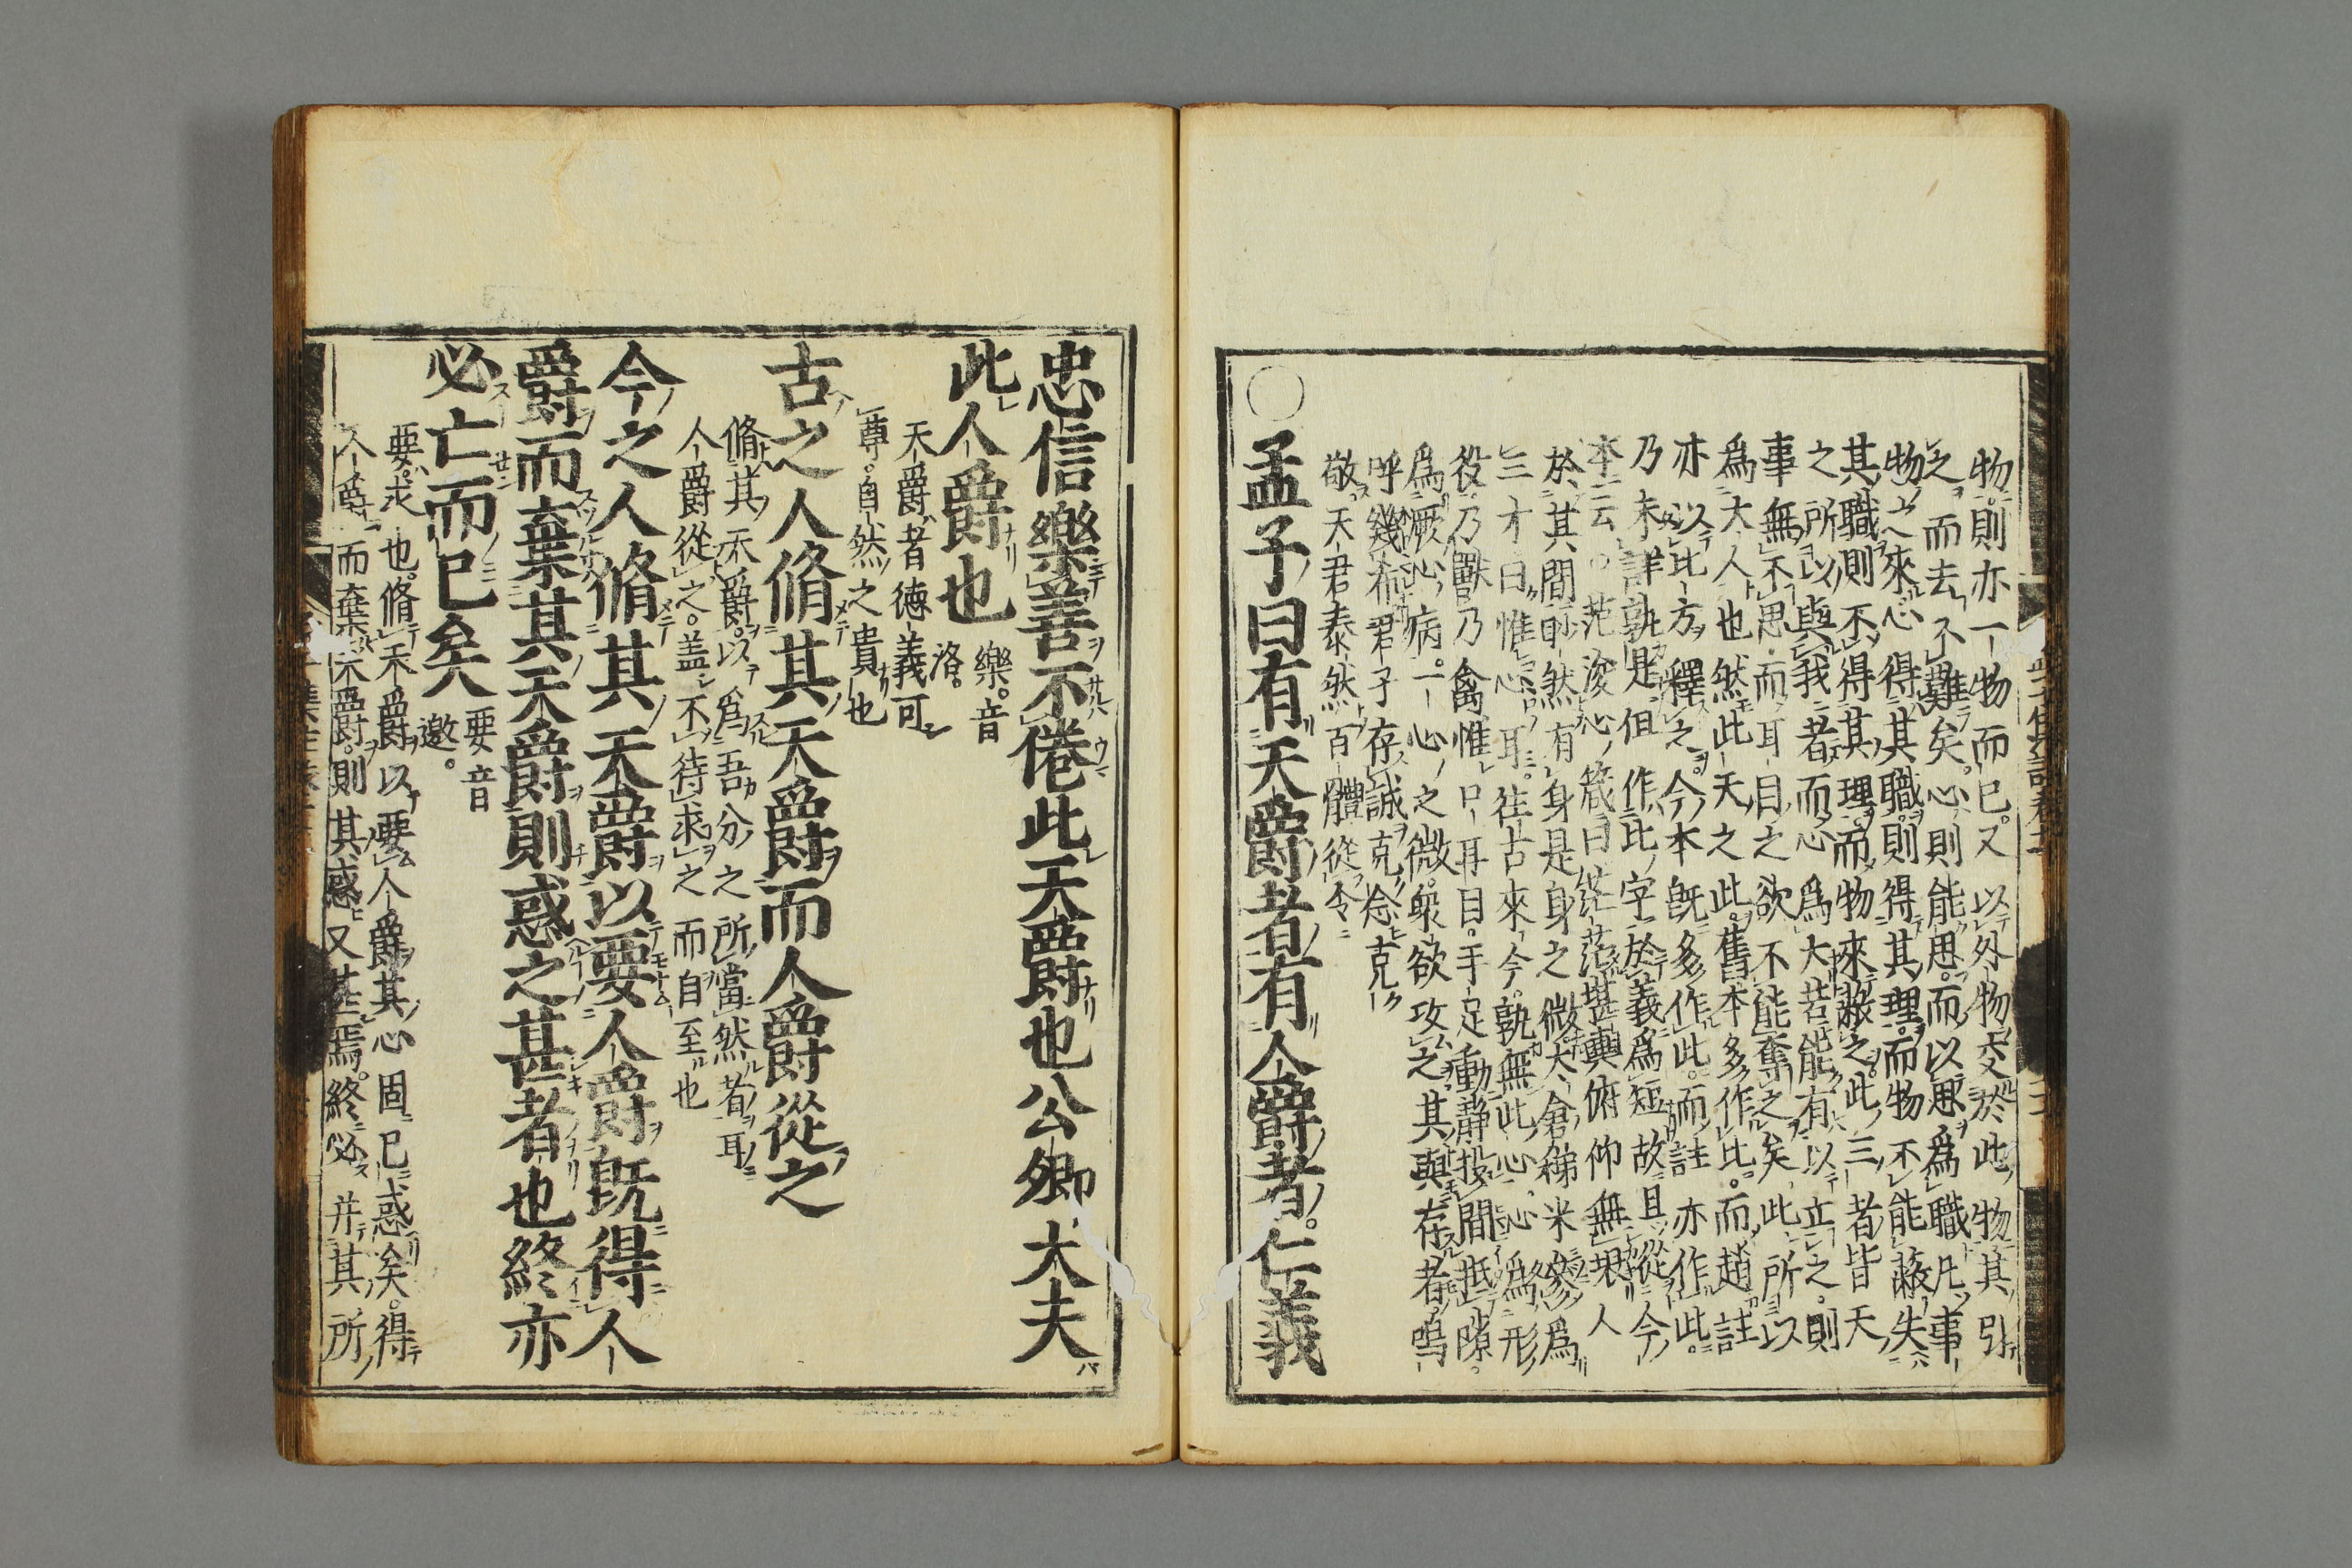 物則亦一物而已。又以外物交於此物其引
之而去不難矣。心則能思。而以思爲職。凡事
物之來心得其職則得其理。而物不能蔽。失
其職則不得其理。而物來蔽之。此三者皆天
之所以與我者而心爲大。若能有以立之。則
事無不思而耳目之欲不能奪之矣此所以
爲大人也。然此天之此。舊本多作比。而趙註
亦以比方釋之。今本旣多作此。而註亦作此。
乃未詳孰是。但作比字於義爲短。故且從今
本云。○范浚心箴曰茫茫堪輿俯仰無垠人
於其間眇然有身。是身之微太倉稊米參爲
三才曰惟心耳。往古來今。孰無此心。心爲形
役。乃獸乃禽。惟口耳目。手足動靜投間抵隙。
爲厥心病。一心之微。衆欲攻之。其與存者。嗚
呼幾希。君子存誠。克念克
敬。天君泰然百體從令
○孟子曰有天爵者有人爵者。仁義
忠信樂善不倦此天爵也公卿大夫
此人爵也 樂。音洛。
天爵者德義可
尊。自然之貴也
古之人脩其天爵而人爵從之
脩其天爵。以爲吾分之所當然者耳
人爵從之。盖不待求之而自至也
今之人脩其天爵以要人爵旣得人
爵而棄其天爵則惑之甚者也終亦
必亡而已矣 要音邀。
要。求也。脩天爵以要人爵其心固已惑矣。得
人爵而棄天爵。則其惑又甚焉。終必并其所